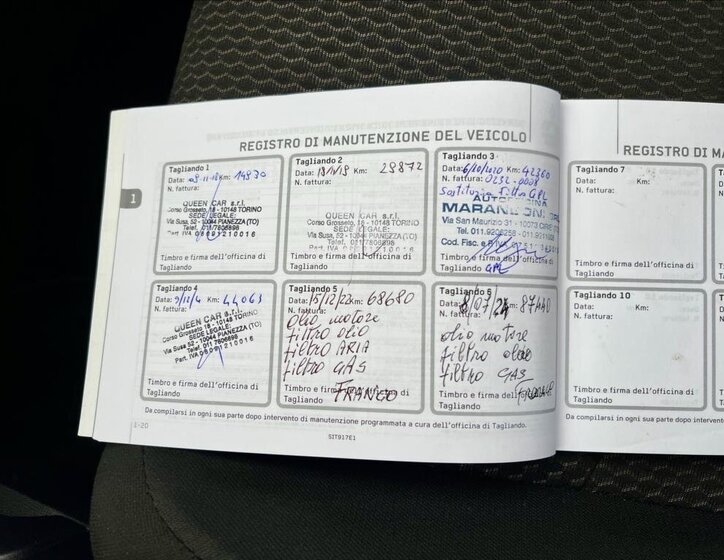 REGISTRO DI MANUTENZIONE DEL VEICOLO
Tagliando 1
Data: 08-11-18 Km: 14830
N. fattura:
QUEEN CAR s.r.l.
Corso Grosseto, 18 - 10148 TORINO
SEDE LEGALE:
Via Susa, 52 - 10044 PIANEZZA (TO)
Telef. 011 7806898
Part. IVA 08691210016
Timbro e firma dell'officina di
Tagliando
Tagliando 2
Data: Km: 29872
N. fattura:
QUEEN CAR s.r.l.
Corso Grosseto, 18 - 10148 TORINO
SEDE LEGALE:
Via Susa, 52 - 10044 PIANEZZA (TO)
Telef. 011 7806898
Part. IVA 08691210016
Timbro e firma dell'officina di
Tagliando
Tagliando 3
Data: 6/10/2020 Km: 42360
N. fattura: 0232-0008
Sostituzio filtro GPL
MARAN
Via San Maurizio 31 - 10073 CIRIE
Tel. 011.9208258 - 011.921
Cod. Fisc. e P.IVA
Timbro e firma dell'officina di
Tagliando GPL
Tagliando 4
Data: Km: 44063
N. fattura:
QUEEN CAR s.r.l.
Corso Grosseto, 18 - 10148 TORINO
SEDE LEGALE:
Via Susa, 52 - 10044 PIANEZZA (TO)
Telef. 011 7806898
Part. IVA 08691210016
Timbro e firma dell'officina di
Tagliando
Tagliando 5
Data: 15/12/22 Km: 68680
N. fattura:
olio motore
filtro olio
filtro ARIA
filtro GAS
Timbro e firma dell'officina di
Tagliando FRANCO
Tagliando 6
Data: 8/07/24 Km: 87440
N. fattura:
olio motore
filtro olio
filtro GAS
Timbro e firma dell'officina di
Tagliando
Da compilarsi in ogni sua parte dopo intervento di manutenzione programmata a cura dell'officina di Tagliando.
1-20
SIT917E1
1
REGISTRO DI MA
Tagliando 7
Data: Km:
N. fattura:
Timbro e firma dell'officina di
Tagliando
Tagliando 10
Data: Km:
N. fattura:
Timbro e firma dell'officina di
Tagliando
Da compilarsi in ogni sua parte dopo inter